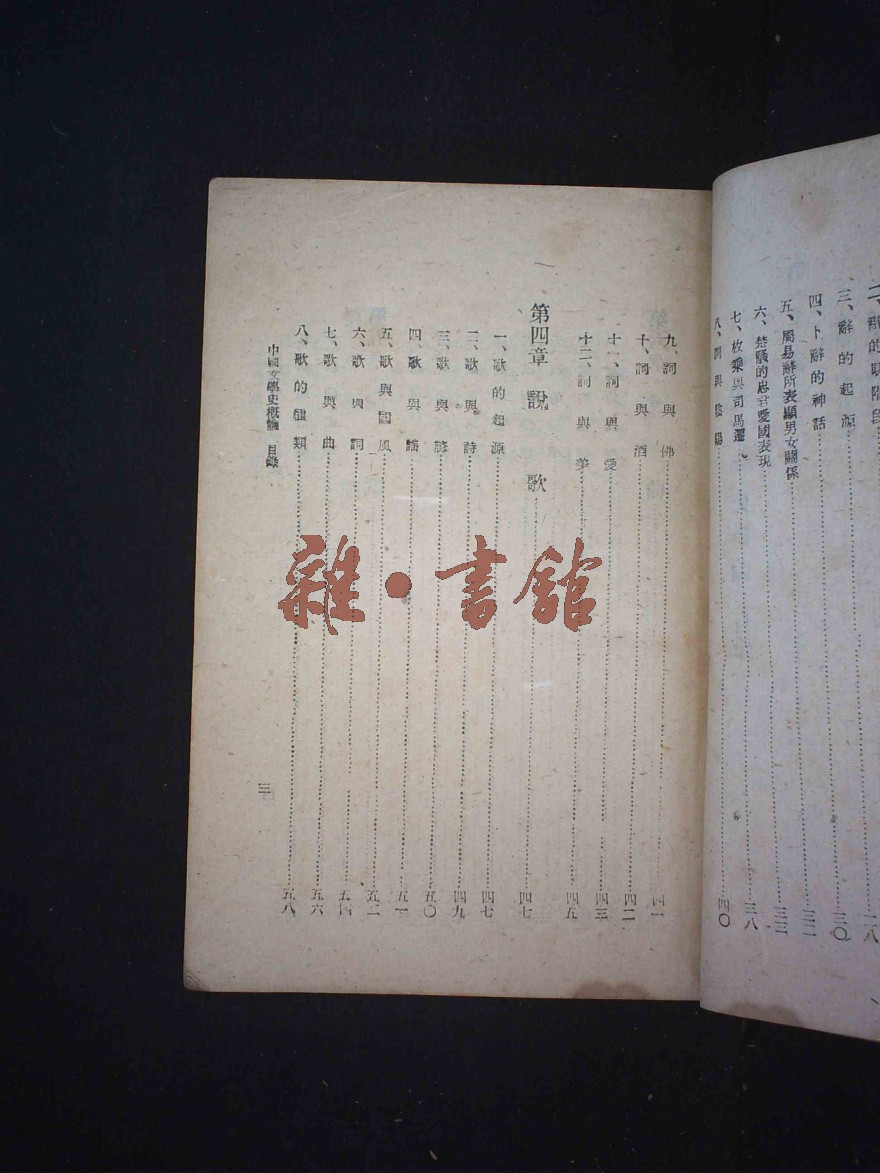 三、辭的起源……三〇
四、卜辭的神話……三二
五、周易辭所表顯男女關係……三三
六、楚騷的忠君愛國表現……三八
七、枚乘與司馬遷
八、詞與陰陽……四〇
九、詞與佛……四一
十、詞與酒……四二
十一、詞與愛……四三
十二、詞與美……四五
第四章 說歌……四七
一、歌的起源……四七
二、歌與詩……四九
三、歌與諺……五〇
四、歌與謠……五一
五、歌與國風……五二
六、歌與詞……五四
七、歌與曲……五六
八、歌的種類……五八
中國文學史概論 目錄
三
雜·書館